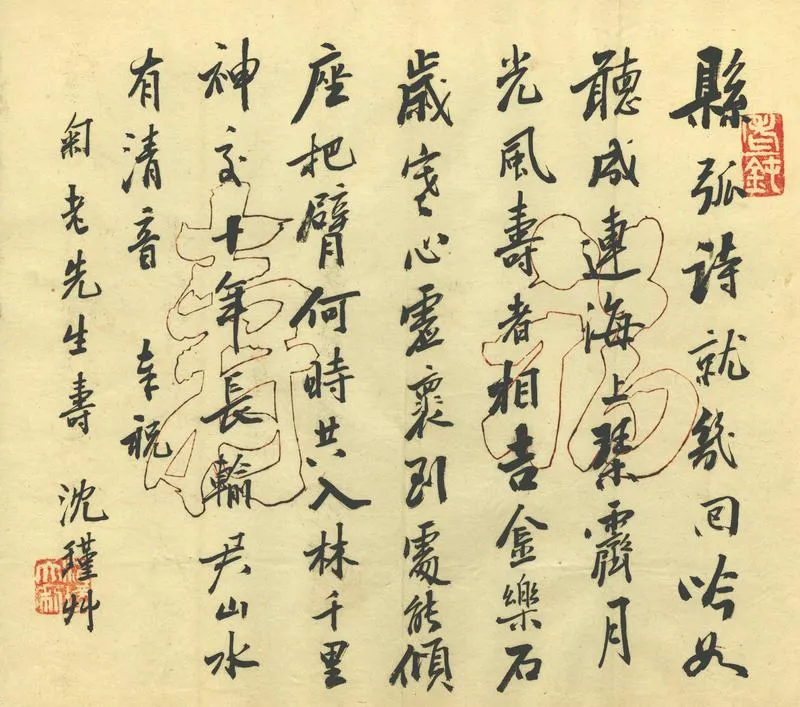 縣弧詩就幾回吟如
聽成連海上琴霽月
光風壽者相吉金樂石
歲寒心虛褱到處能傾
座把臂何時共入林千里
神交十年長輸君山水
有清音 奉祝
老先生壽 沈瑾艸
福壽